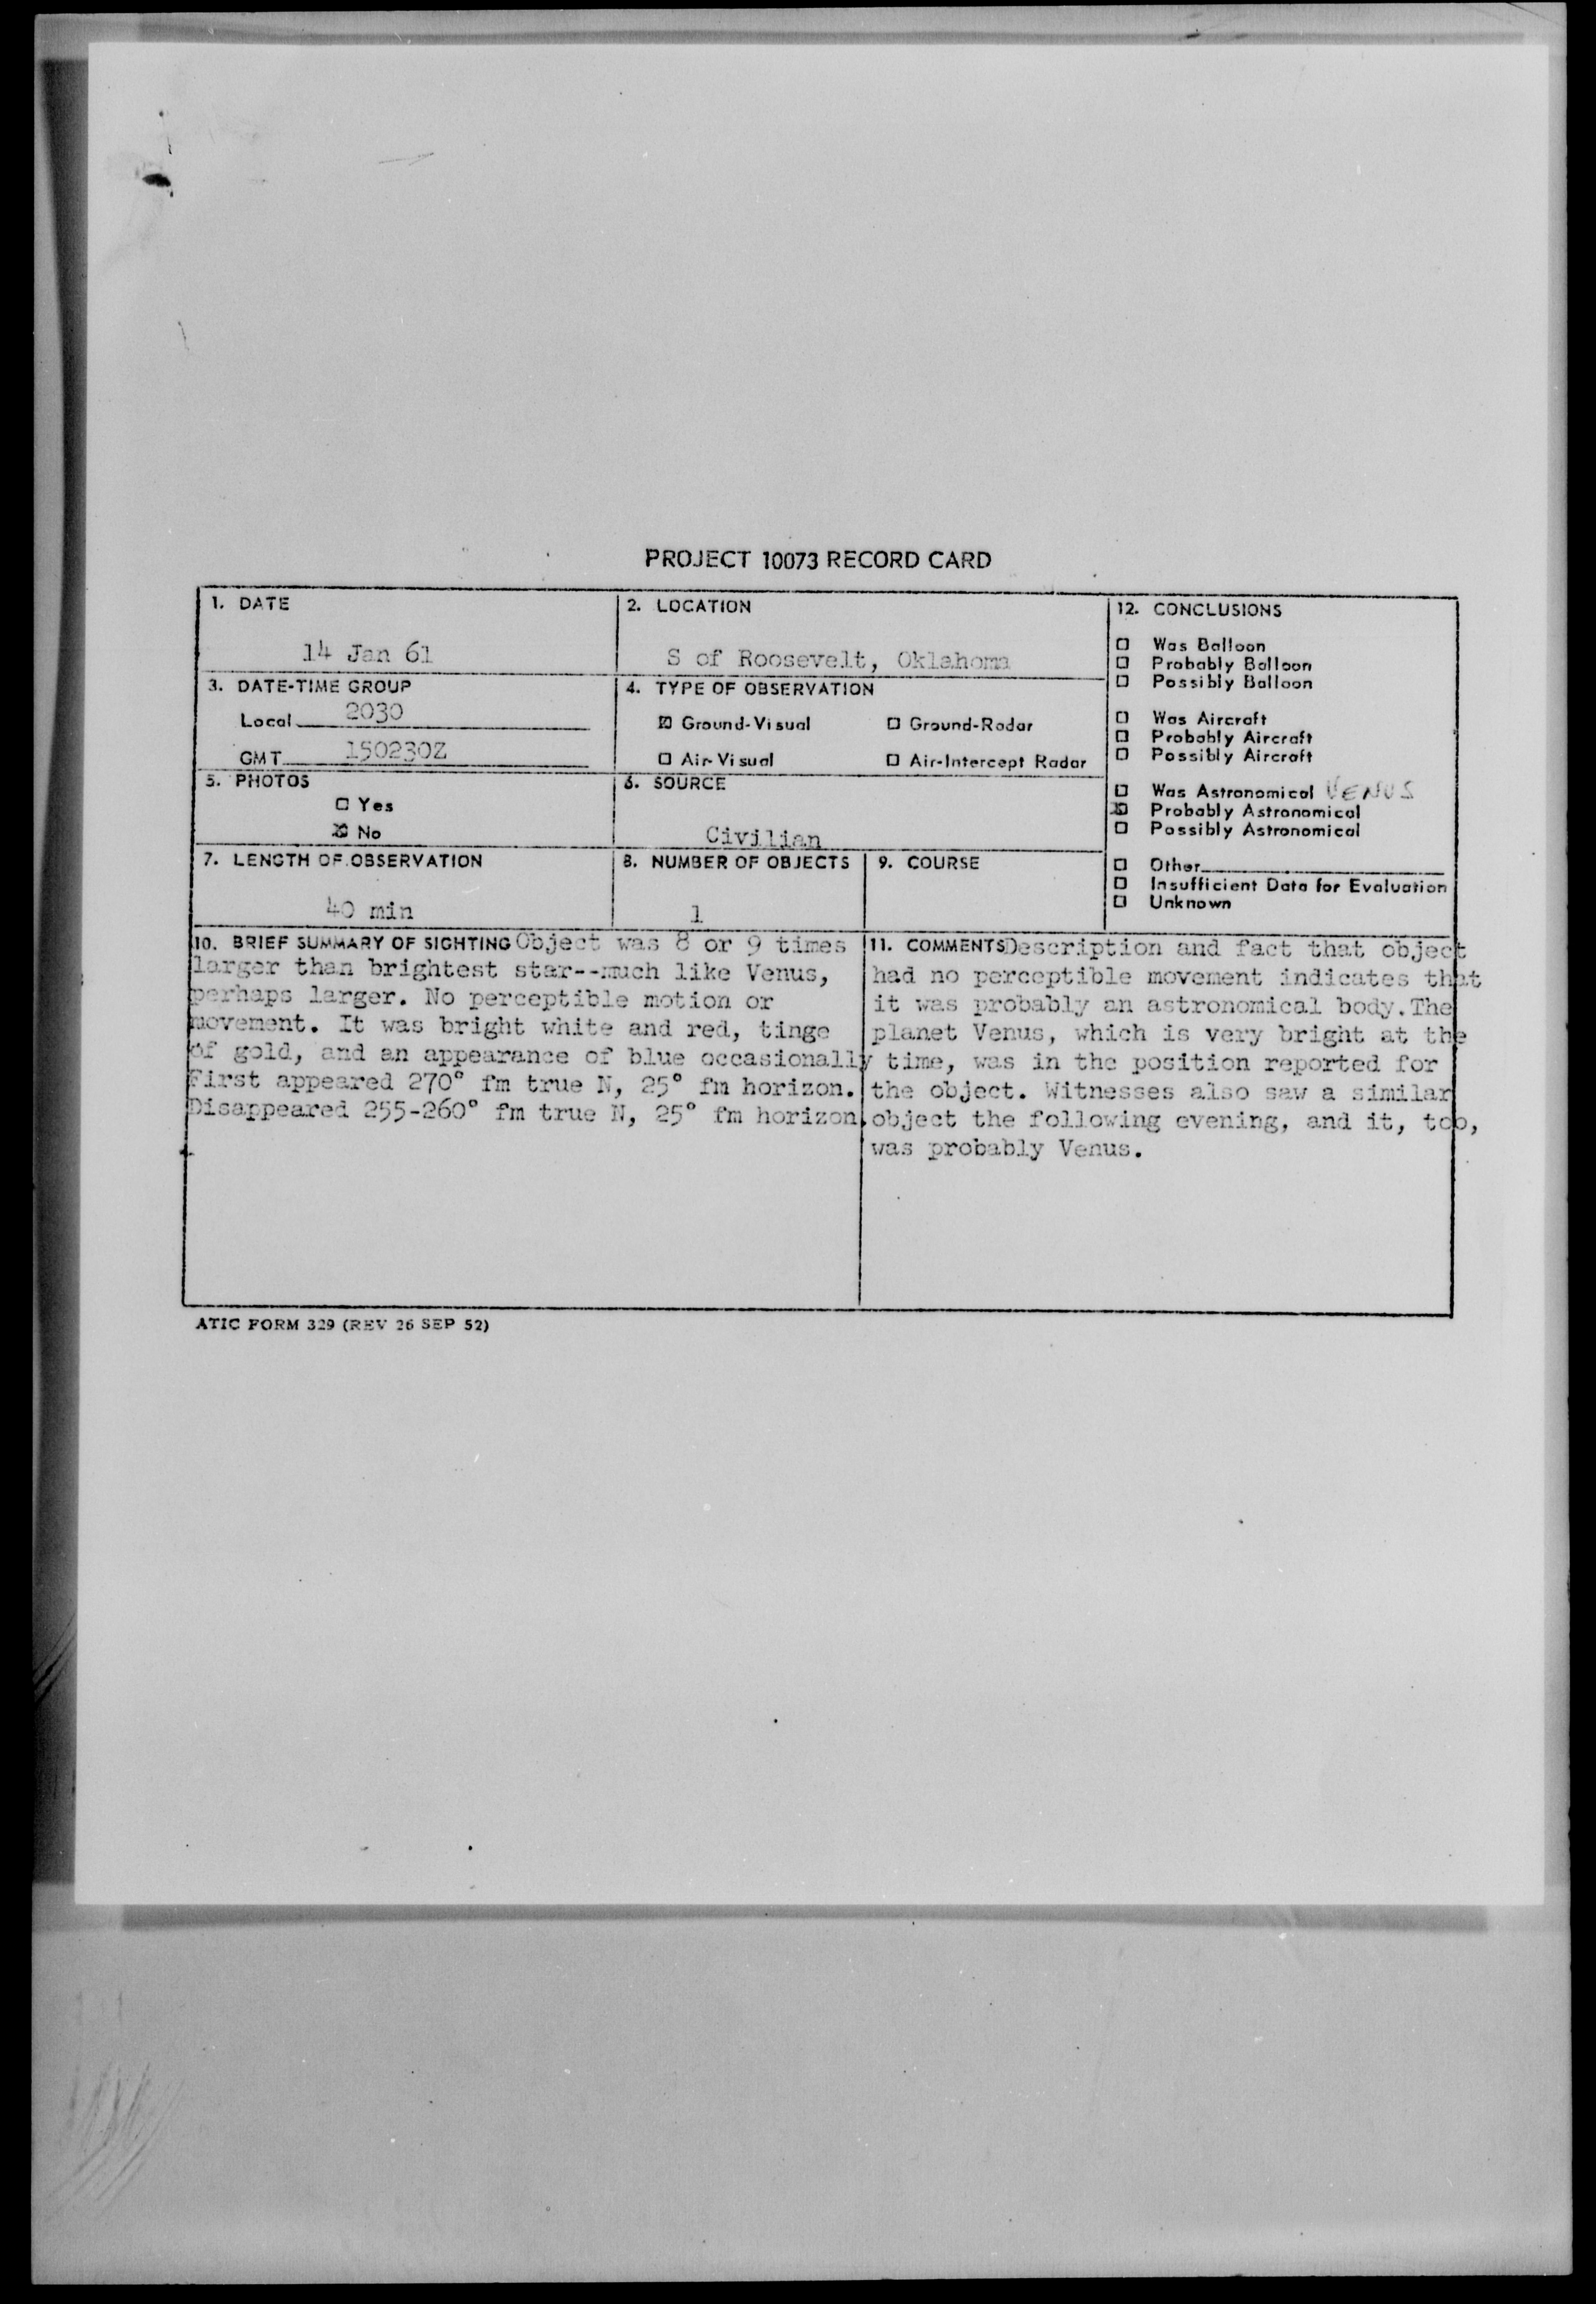 PROJECT 10073 RECORD CARD
1. DATE
14 Jan 61
2. LOCATION
S of Roosevelt, Oklahoma
3. DATE-TIME GROUP
Local 2030
GMT 150230Z
4. TYPE OF OBSERVATION
☒ Ground-Visual ☐ Ground-Radar
☐ Air-Visual ☐ Air-Intercept Radar
5. PHOTOS
☐ Yes
☒ No
6. SOURCE
Civilian
7. LENGTH OF OBSERVATION
40 min
8. NUMBER OF OBJECTS
1
9. COURSE
12. CONCLUSIONS
☐ Was Balloon
☐ Probably Balloon
☐ Possibly Balloon
☐ Was Aircraft
☐ Probably Aircraft
☐ Possibly Aircraft
☐ Was Astronomical VENUS
☒ Probably Astronomical
☐ Possibly Astronomical
☐ Other
☐ Insufficient Data for Evaluation
☐ Unknown
10. BRIEF SUMMARY OF SIGHTING Object was 8 or 9 times
larger than brightest star--much like Venus,
perhaps larger. No perceptible motion or
movement. It was bright white and red, tinge
of gold, and an appearance of blue occasionally
First appeared 270° fm true N, 25° fm horizon.
Disappeared 255-260° fm true N, 25° fm horizon.
11. COMMENTS Description and fact that object
had no perceptible movement indicates that
it was probably an astronomical body. The
planet Venus, which is very bright at the
time, was in the position reported for
the object. Witnesses also saw a similar
object the following evening, and it, too,
was probably Venus.
ATIC FORM 329 (REV 26 SEP 52)